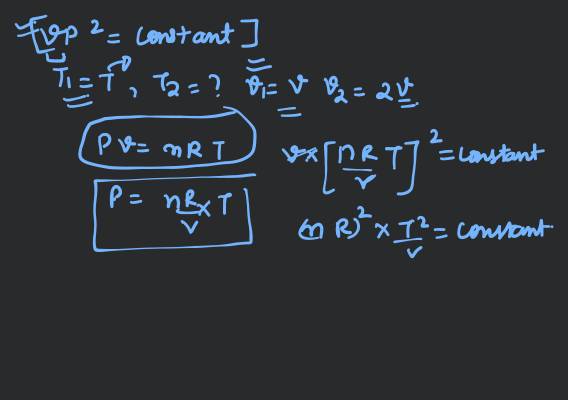 [vp² = constant]
T₁ = T, T₂ = ? v₁ = v v₂ = 2v
Pv = nRT
v × [nR/v T]² = constant
P = nR/v × T
(nR)² × T²/v = constant